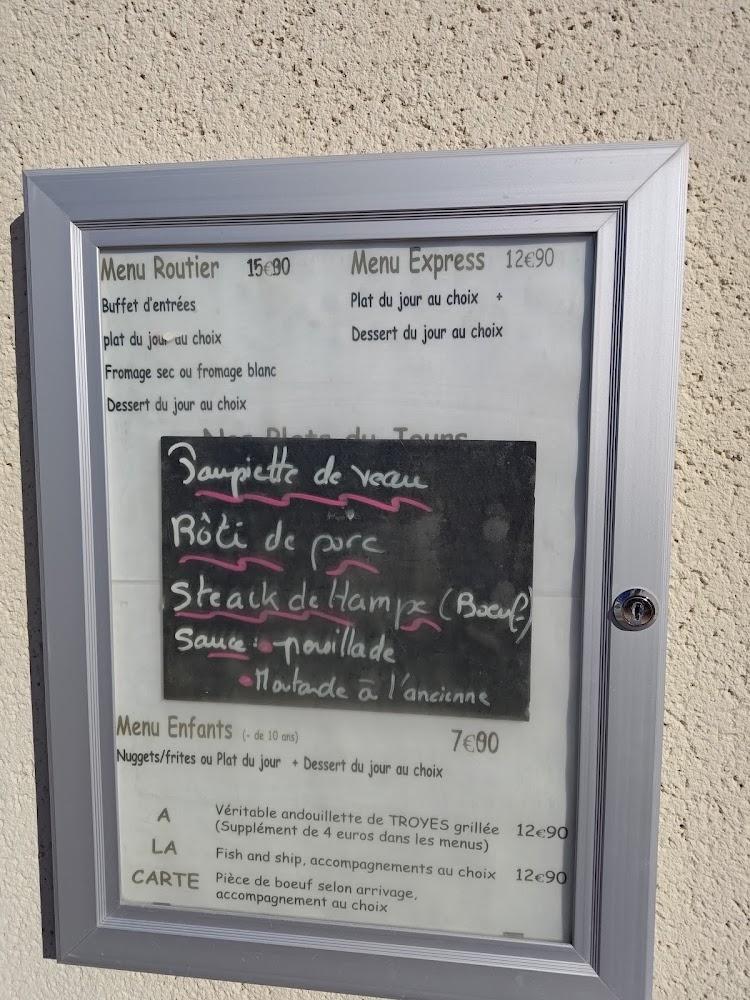 Menu Routier 15€90
Buffet d'entrées
plat du jour au choix
Fromage sec ou fromage blanc
Dessert du jour au choix
Menu Express 12€90
Plat du jour au choix +
Dessert du jour au choix
Nos Plats du Jours
Paupiette de veau
Rôti de porc
Steack de Hampe (Boeuf)
Sauce : • pouillade
• Moutarde à l'ancienne
Menu Enfants (- de 10 ans) 7€00
Nuggets/frites ou Plat du jour + Dessert du jour au choix
A LA CARTE
Véritable andouillette de TROYES grillée 12€90
(Supplément de 4 euros dans les menus)
Fish and ship, accompagnements au choix 12€90
Pièce de boeuf selon arrivage,
accompagnement au choix